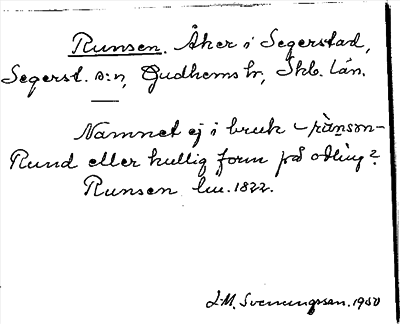 Runsen. Åker i Segerstad,
Segerst. s:n, Gudhems hr, Skb. län.
Namnet ej i bruk – rùnsən –
Rund eller kullig form på odling?
Runsen lm. 1822.
J. M. Svenungsson. 1950